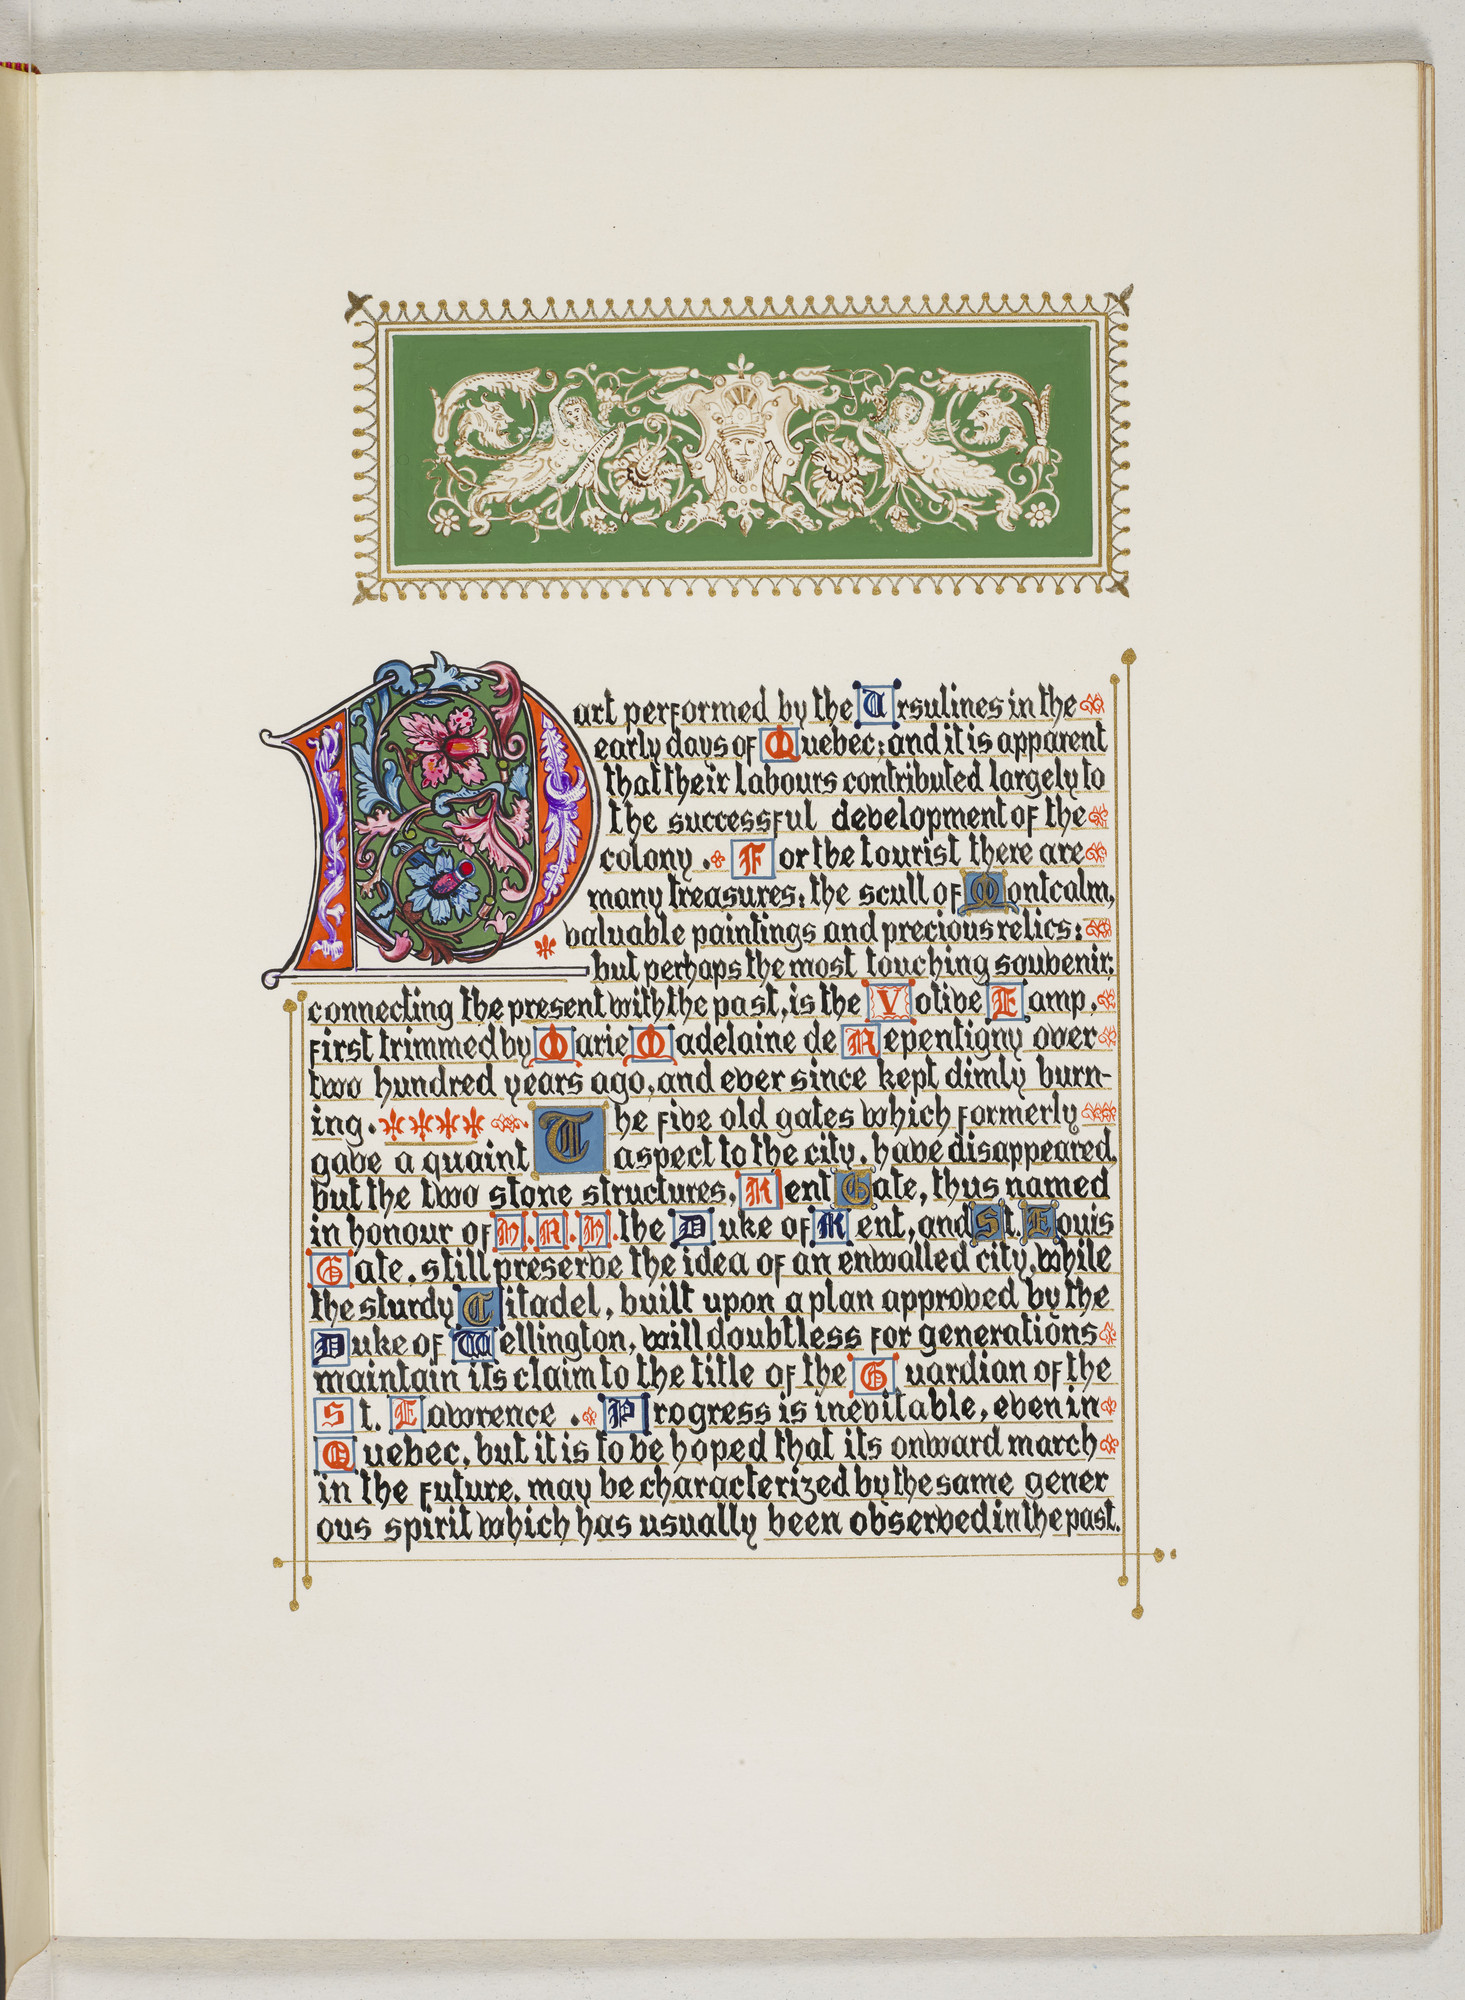 Part performed by the Ursulines in the
early days of Quebec; and it is apparent
that their labours contributed largely to
the successful development of the
colony. For the tourist there are
many treasures; the scull of Montcalm,
valuable paintings and precious relics;
but perhaps the most touching souvenir,
connecting the present with the past, is the Votive Lamp,
first trimmed by Marie Madelaine de Repentigny over
two hundred years ago, and ever since kept dimly burn-
ing. The five old gates which formerly
gave a quaint aspect to the city, have disappeared,
but the two stone structures, Kent Gate, thus named
in honour of H.R.H. the Duke of Kent, and St. Louis
Gate, still preserve the idea of an enwalled city, while
the sturdy Citadel, built upon a plan approved by the
Duke of Wellington, will doubtless for generations
maintain its claim to the title of the Guardian of the
St. Lawrence. Progress is inevitable, even in
Quebec, but it is to be hoped that its onward march
in the future, may be characterized by the same gener
ous spirit which has usually been observed in the past.